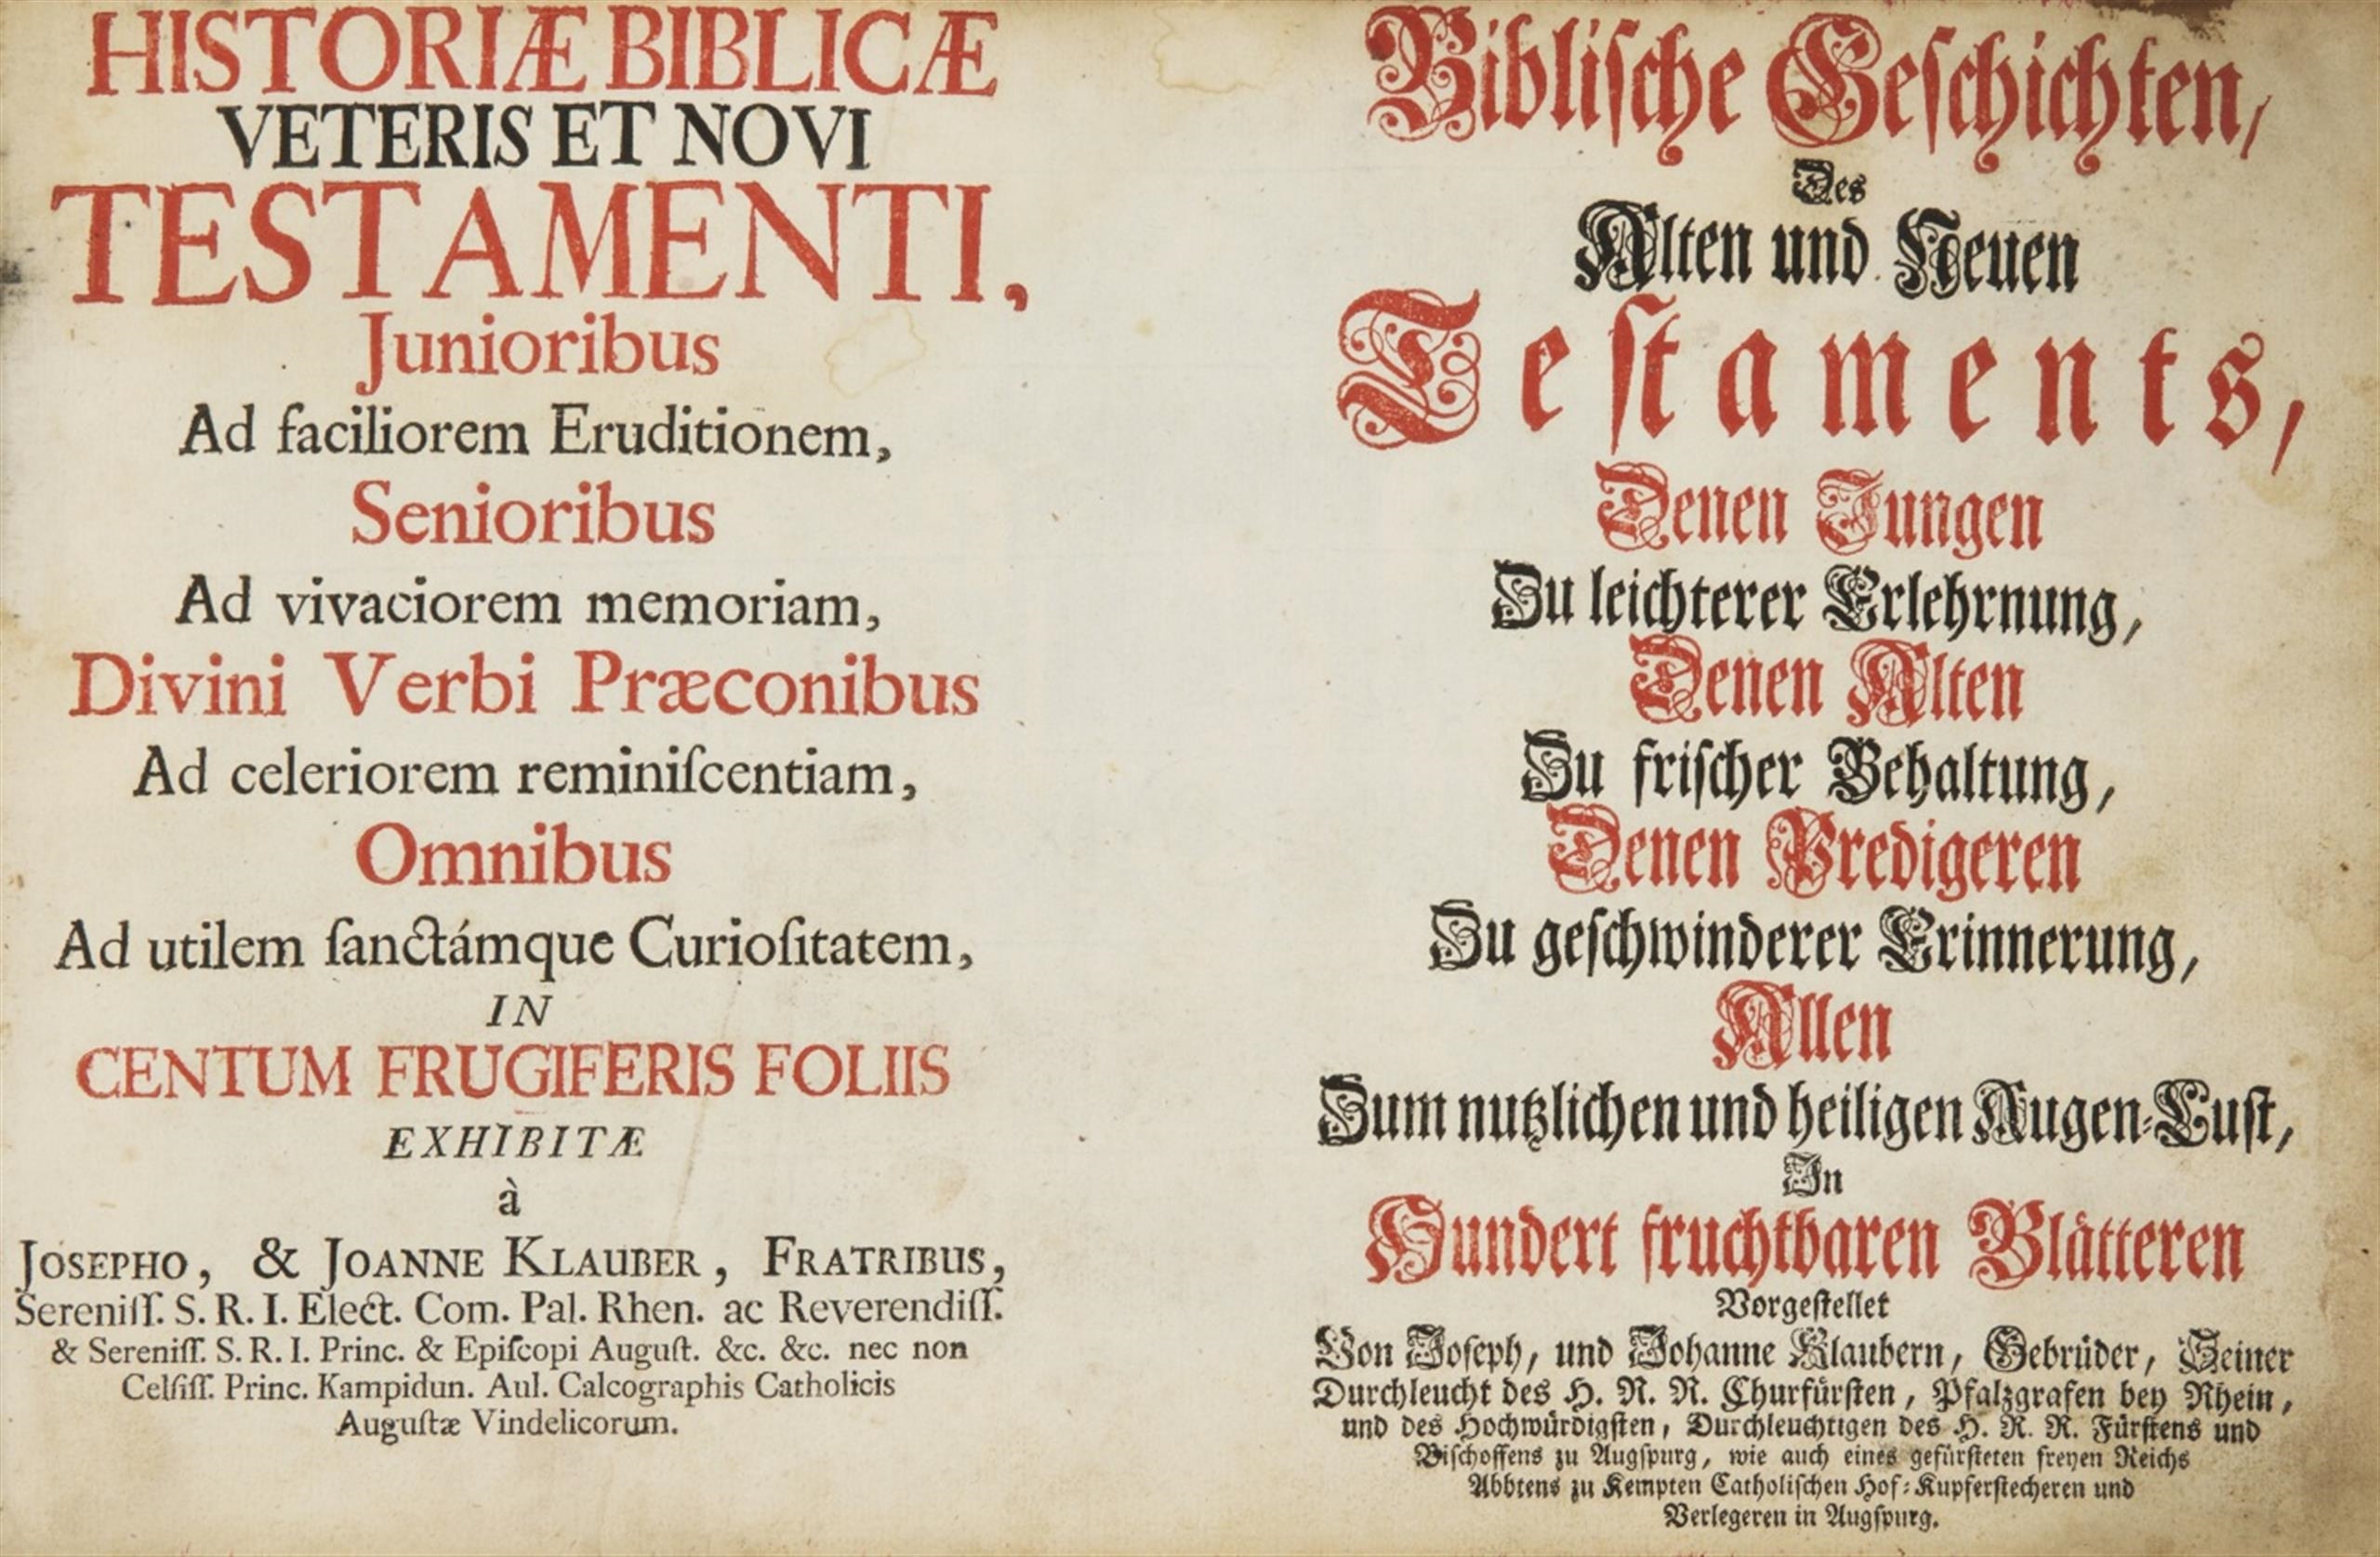 HISTORIÆ BIBLICÆ
VETERIS ET NOVI
TESTAMENTI,
Junioribus
Ad faciliorem Eruditionem,
Senioribus
Ad vivaciorem memoriam,
Divini Verbi Præconibus
Ad celeriorem reminiſcentiam,
Omnibus
Ad utilem ſanctámque Curioſitatem,
IN
CENTUM FRUGIFERIS FOLIIS
EXHIBITÆ
à
JOSEPHO, & JOANNE KLAUBER, FRATRIBUS,
Sereniſſ. S. R. I. Elect. Com. Pal. Rhen. ac Reverendiſſ.
& Sereniſſ. S. R. I. Princ. & Epiſcopi Auguſt. &c. &c. nec non
Celſiſſ. Princ. Kampidun. Aul. Calcographis Catholicis
Auguſtæ Vindelicorum.
Bibliſche Geſchichten,
Des
Alten und Neuen
Teſtaments,
Denen Jungen
Zu leichterer Erlehrnung,
Denen Alten
Zu friſcher Behaltung,
Denen Predigeren
Zu geſchwinderer Erinnerung,
Allen
Zum nutzlichen und heiligen Augen-Luſt,
In
Hundert fruchtbaren Blätteren
Vorgeſtellet
Von Joſeph, und Johanne Klaubern, Gebrüder, Seiner
Durchleucht des H. R. R. Churfürſten, Pfalzgrafen bey Rhein,
und des Hochwürdigſten, Durchleuchtigen des H. R. R. Fürſtens und
Biſchoffens zu Augſpurg, wie auch eines gefürſteten freyen Reichs
Abbtens zu Kempten Catholiſchen Hof-Kupferſtecheren und
Verlegeren in Augſpurg.